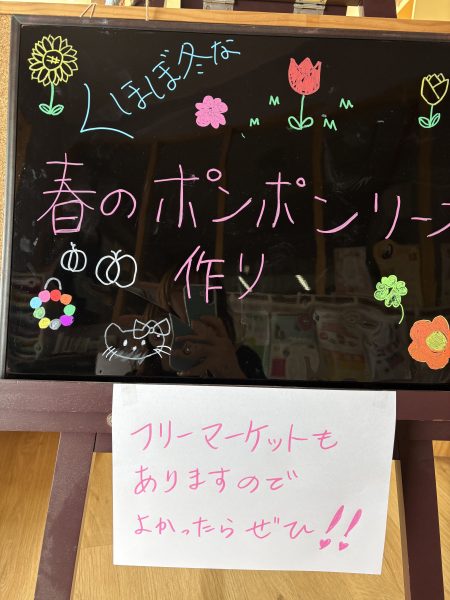 ほぼ冬な
春のポンポンリース
作り
フリーマーケットも
ありますので
よかったらぜひ!!